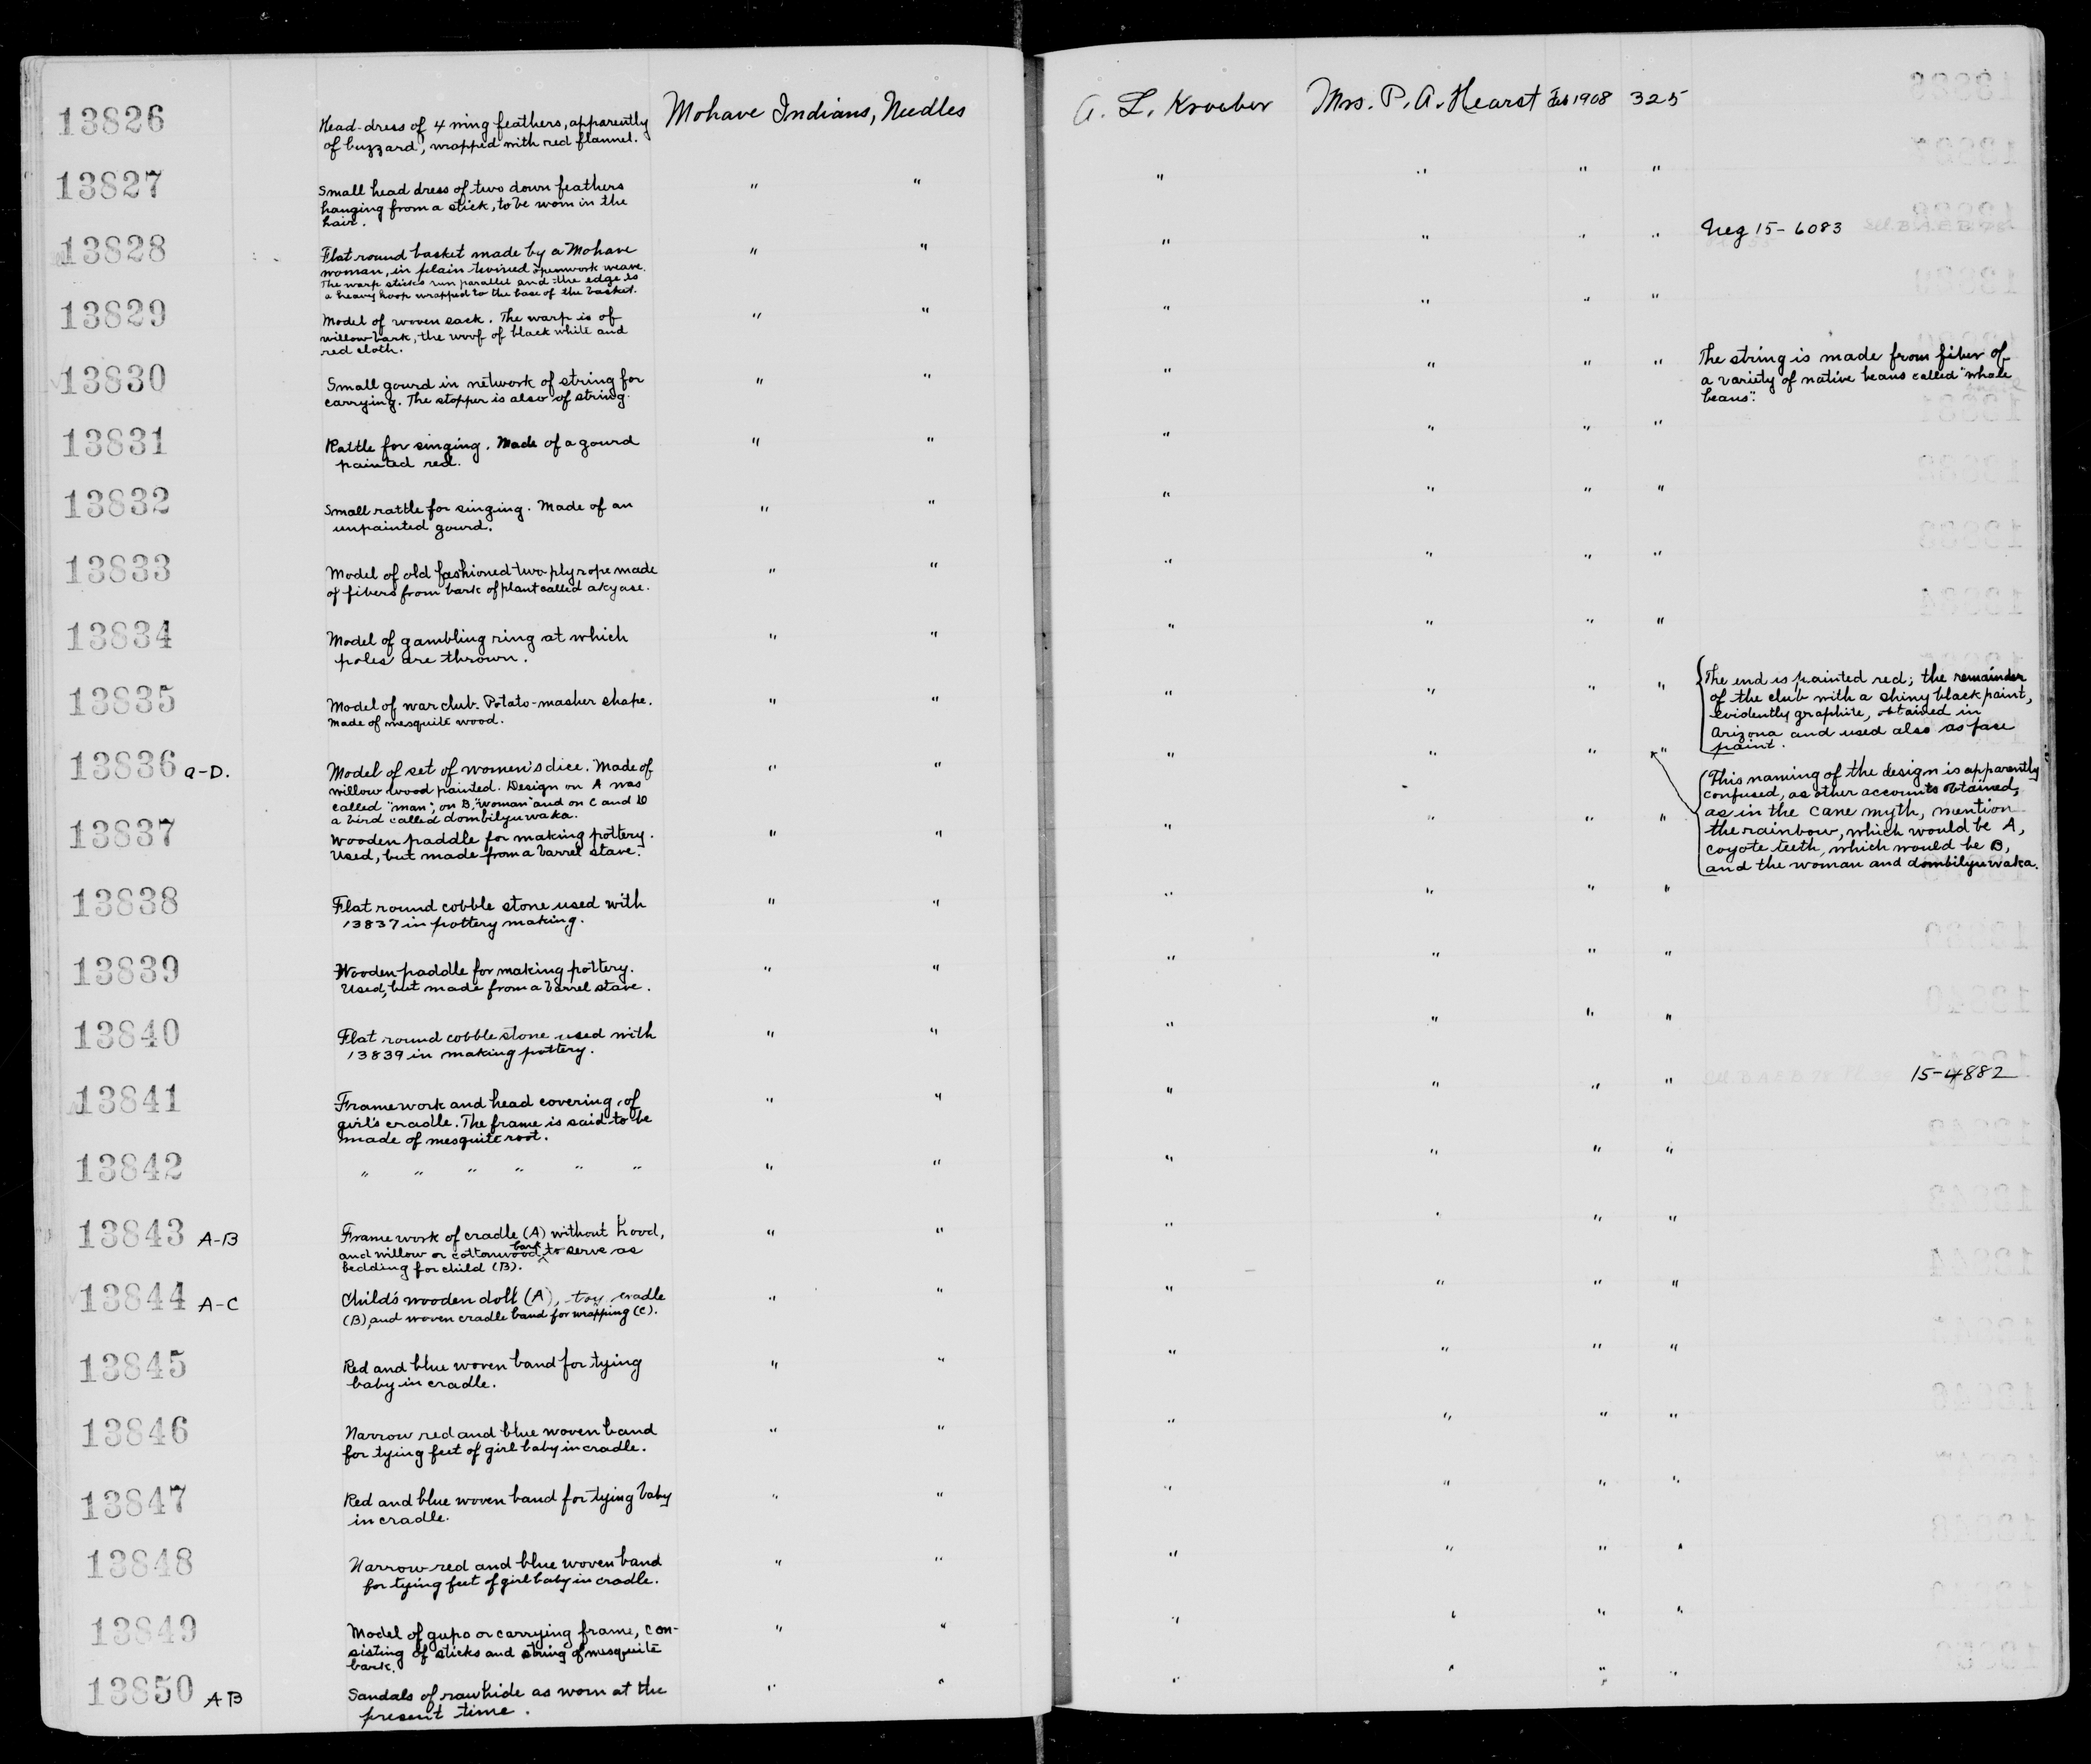 13826 Head-dress of 4 wing feathers, apparently Mohave Indians, Needles A. L. Kroeber Mrs. P. A. Hearst Feb 1908 325
of buzzard, wrapped with red flannel.
13827 Small head dress of two down feathers " " " " " "
hanging from a stick, to be worn in the
hair.
13828 Flat round basket made by a Mohave " " " " " " Neg 15-6083
woman, in plain twined openwork weave.
The warp sticks run parallel and the edge is
a heavy hoop wrapped to the base of the basket.
13829 Model of woven sack. The warp is of " " " " " "
willow bark, the woof of black white and
red cloth.
13830 Small gourd in network of string for " " " " " " The string is made from fiber of
carrying. The stopper is also of string. a variety of native beans called "whale
beans".
13831 Rattle for singing. Made of a gourd " " " " " "
painted red.
13832 Small rattle for singing. Made of an " " " " " "
unpainted gourd.
13833 Model of old fashioned two-ply rope made " " " " " "
of fibers from bark of plant called akyase.
13834 Model of gambling ring at which " " " " " "
poles are thrown.
13835 Model of war club. Potato-masher shape. " " " " " " The end is painted red; the remainder
Made of mesquite wood. of the club with a shiny black paint,
evidently graphite, obtained in
Arizona and used also as face
paint.
13836 a-D. Model of set of women's dice. Made of " " " " " " This naming of the design is apparently
willow wood painted. Design on A was confused, as other accounts obtained,
called "man"; on B, "woman" and on C and D as in the cane myth, mention
a bird called dombilyuwaka. the rainbow, which would be A,
coyote teeth, which would be B,
and the woman and dombilyuwaka.
13837 Wooden paddle for making pottery. " " " " " "
Used, but made from a barrel stave.
13838 Flat round cobble stone used with " " " " " "
13837 in pottery making.
13839 Wooden paddle for making pottery. " " " " " "
Used, but made from a barrel stave.
13840 Flat round cobble stone used with " " " " " "
13839 in making pottery.
13841 Framework and head covering of " " " " " " 15-4882
girl's cradle. The frame is said to be
made of mesquite root.
13842 " " " " " " " " " " " "
13843 A-B Frame work of cradle (A) without hood, " " " " " "
and willow or cottonwood bark to serve as
bedding for child (B).
13844 A-C Child's wooden doll (A), toy cradle " " " " " "
(B), and woven cradle band for wrapping (C).
13845 Red and blue woven band for tying " " " " " "
baby in cradle.
13846 Narrow red and blue woven band " " " " " "
for tying feet of girl baby in cradle.
13847 Red and blue woven band for tying baby " " " " " "
in cradle.
13848 Narrow red and blue woven band " " " " " "
for tying feet of girl baby in cradle.
13849 Model of gupo or carrying frame, con- " " " " " "
sisting of sticks and string of mesquite
bark.
13850 A B Sandals of rawhide as worn at the " " " " " "
present time.